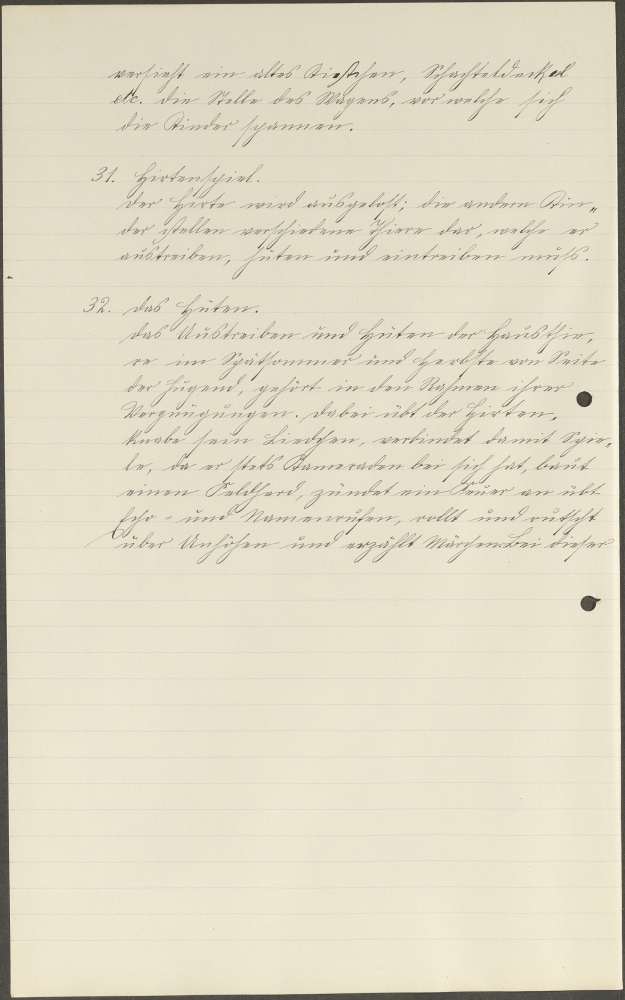 versieht ein altes Kistchen, Schachteldeckel
etc. die Stelle des Wagens, vor welche sich
die Kinder spannen.
31. Hirtenspiel.
Der Hirte wird ausgelost; die andern Kin„
der stellen verschiedene Thiere dar, welche er
austreiben, hüten und eintreiben muß.
32. Das Hüten.
Das Austreiben und Hüten der Hausthie„
re im Spätsommer und Herbste von Seite
der Jugend, gehört in den Rahmen ihrer
Vergnügungen. Dabei übt der Hirten„
knabe sein Liedchen, verbindet damit Spie„
le, da er stets Kameraden bei sich hat, baut
einen Feldherd, zündet ein Feuer an übt
Echo- und Namenrufen, rollt und rutscht
über Anhöhen und erzählt Märchen. Bei dieser